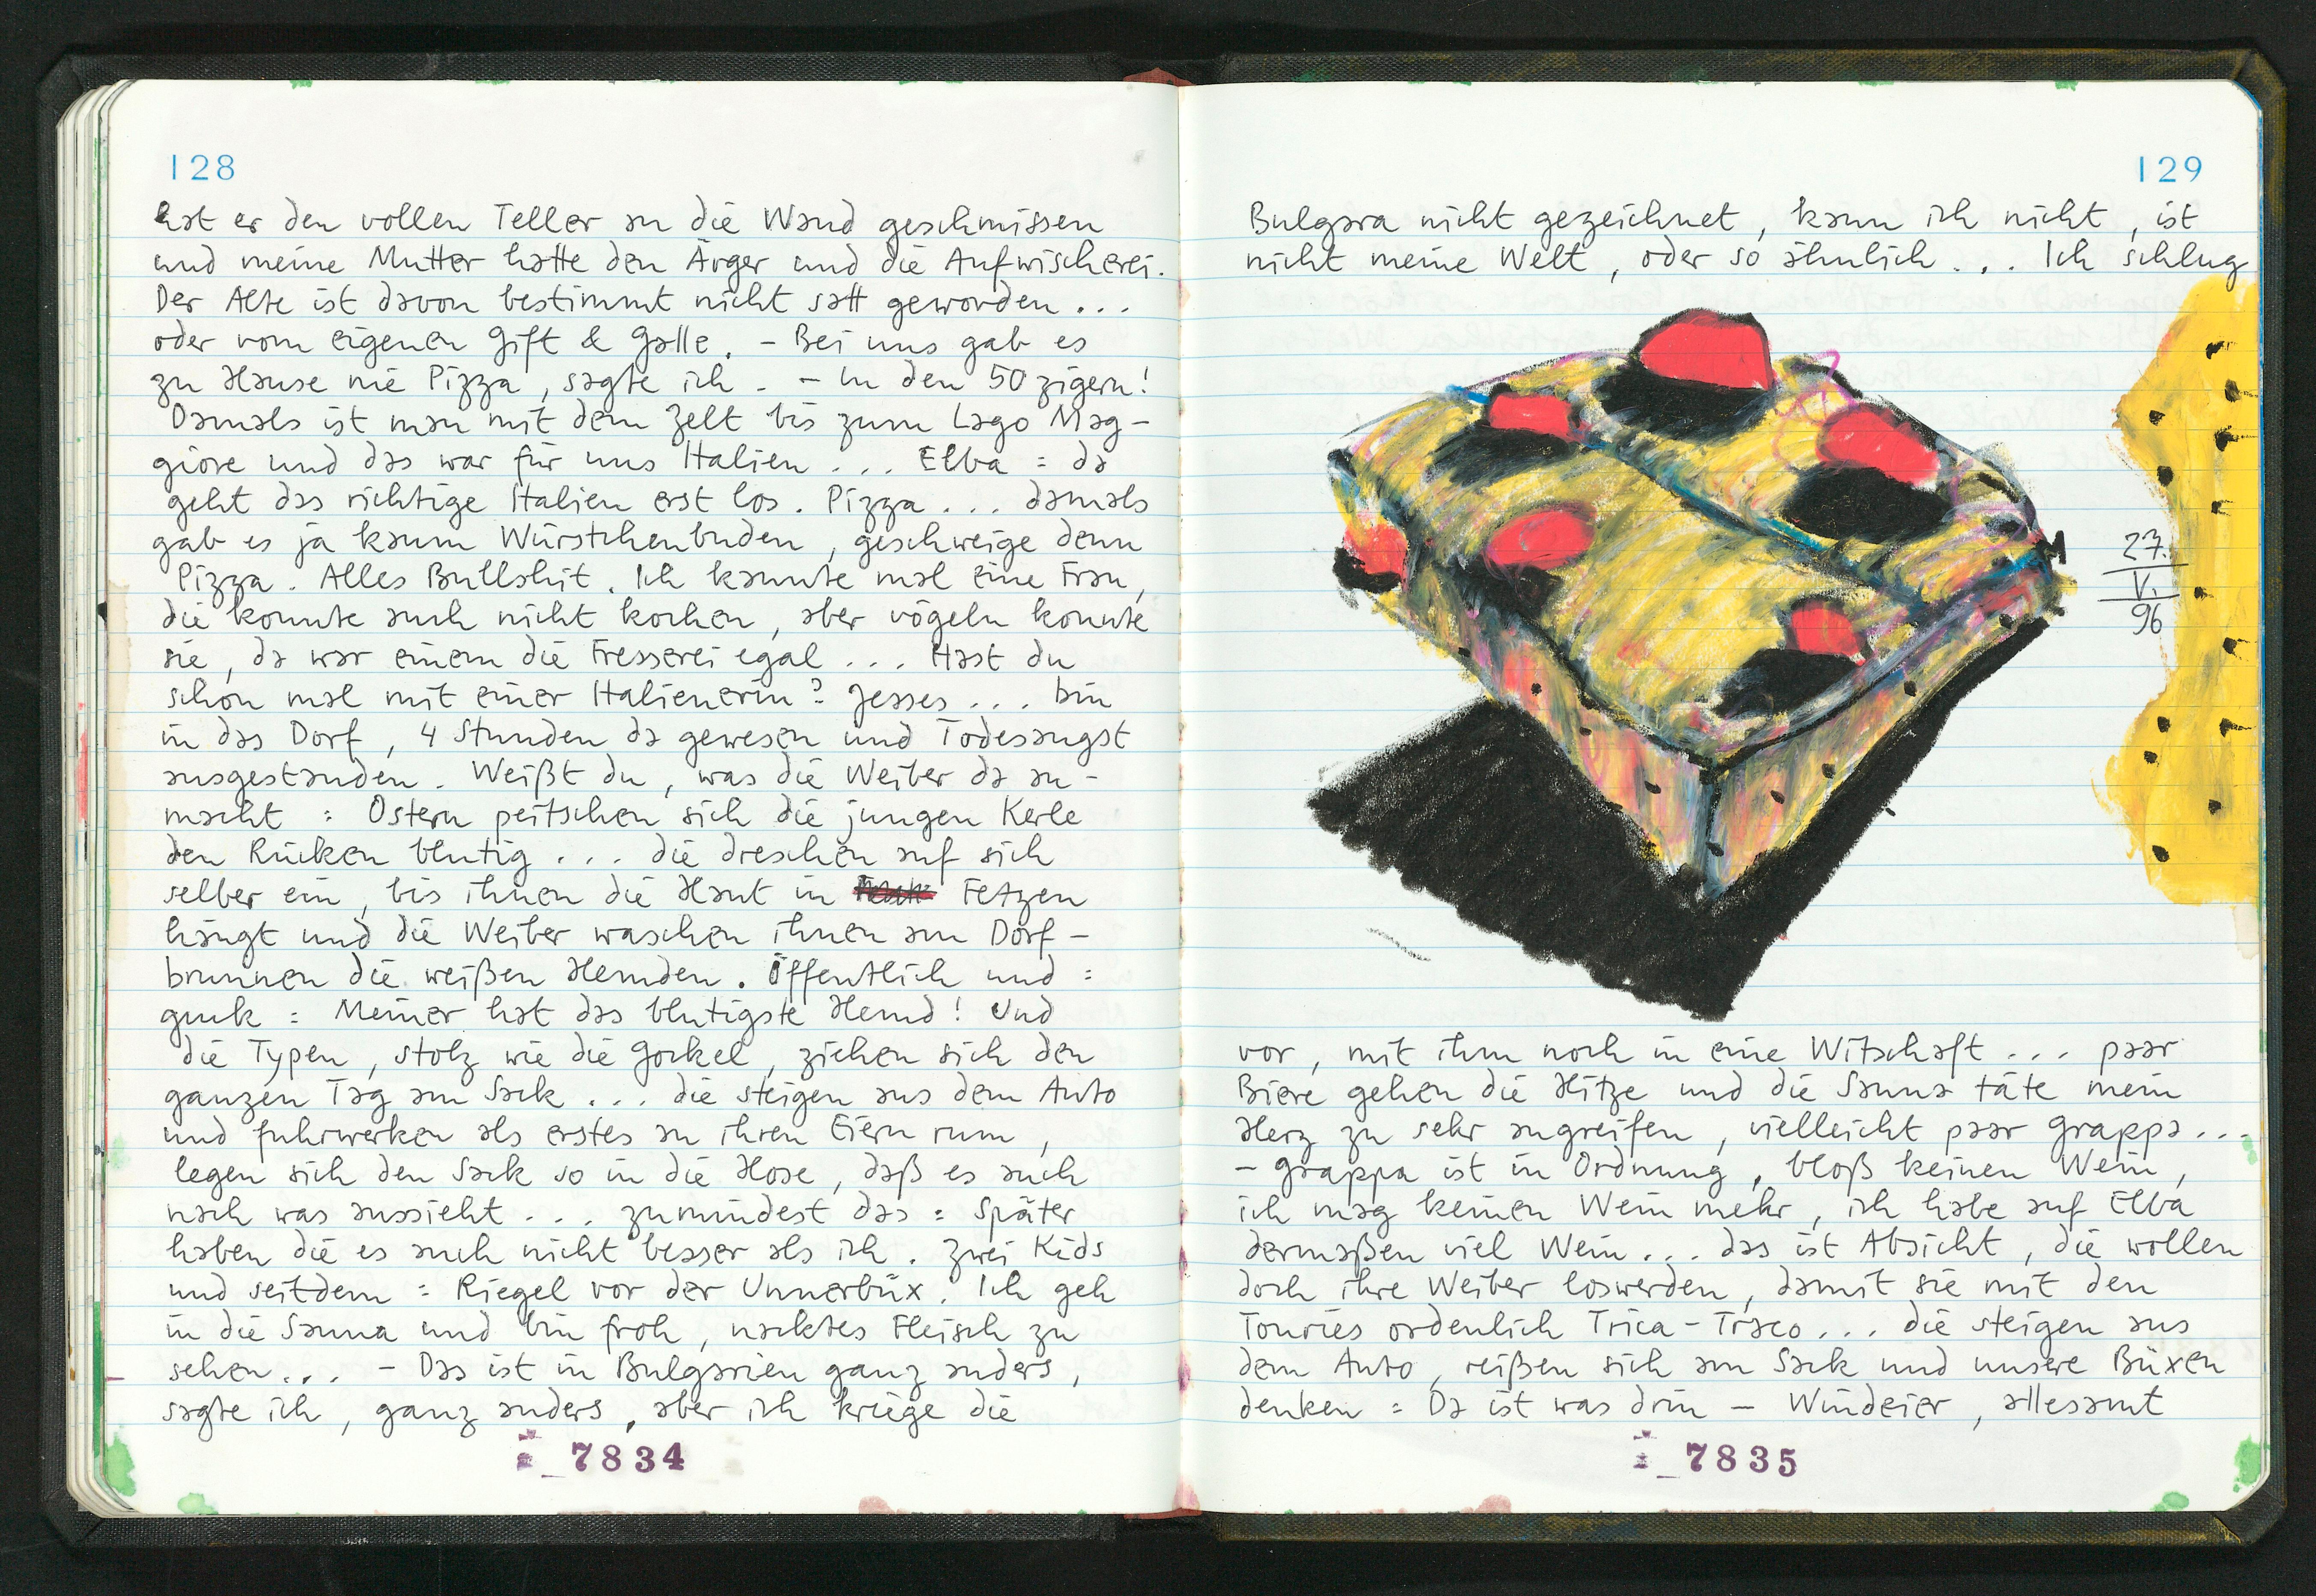 128
hat er den vollen Teller an die Wand geschmissen
und meine Mutter hatte den Ärger und die Aufwischerei.
Der Alte ist davon bestimmt nicht satt geworden...
oder vom eigenen Gift & Galle. – Bei uns gab es
zu Hause nie Pizza, sagte ich. – In den 50zigern!
Damals ist man mit dem Zelt bis zum Lago Mag-
giore und das war für uns Italien... Elba : da
geht das richtige Italien erst los. Pizza... damals
gab es ja kaum Würstchenbuden, geschweige denn
Pizza. Alles Bullshit. Ich kannte mal eine Frau,
die konnte auch nicht kochen, aber vögeln konnte
sie, da war einem die Fresserei egal... Hast du
schon mal mit einer Italienerin? Jesses... bin
in das Dorf, 4 Stunden da gewesen und Todesangst
ausgestanden. Weißt du, was die Weiber da an-
macht : Ostern peitschen sich die jungen Kerle
den Rücken blutig... die dreschen auf sich
selber ein, bis ihnen die Haut in Fetzen
hängt und die Weiber waschen ihnen am Dorf-
brunnen die weißen Hemden. Öffentlich und :
guck : Meiner hat das blutigste Hemd! Und
die Typen, stolz wie die Gockel, ziehen sich den
ganzen Tag am Sack... die steigen aus dem Auto
und fuhrwerken als erstes an ihren Eiern rum,
legen sich den Sack so in die Hose, daß es auch
nach was aussieht... zumindest das : Später
haben die es auch nicht besser als ich. Zwei Kids
und seitdem : Riegel vor der Unnerbüx. Ich geh
in die Sauna und bin froh, nacktes Fleisch zu
sehen... – Das ist in Bulgarien ganz anders,
sagte ich, ganz anders, aber ich kriege die
7834
129
Bulgara nicht gezeichnet, kann ich nicht, ist
nicht meine Welt, oder so ähnlich... Ich schlug
27.
V.
96
vor, mit ihm noch in eine Witschaft... paar
Biere gehen die Hitze und die Sauna täte mein
Herz zu sehr angreifen, vielleicht paar Grappa...
– Grappa ist in Ordnung, bloß keinen Wein,
ich mag keinen Wein mehr, ich habe auf Elba
dermaßen viel Wein... das ist Absicht, die wollen
doch ihre Weiber loswerden, damit sie mit den
Touries ordenlich Trica-Traco... die steigen aus
dem Auto, reißen sich am Sack und unsere Büxen
denken : Da ist was drin – Windeier, allesamt
7835